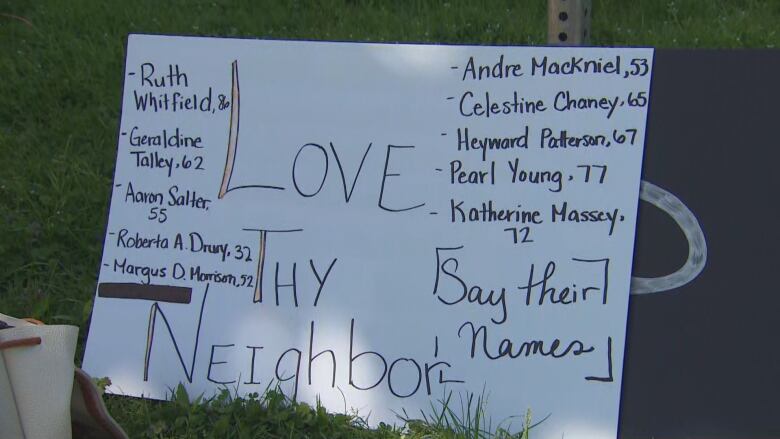 - Ruth
Whitfield, 86
- Geraldine
Talley, 62
- Aaron Salter,
55
- Roberta A. Drury, 32
- Margus D. Morrison, 52
LOVE
THY
NEIGhbor
- Andre Mackniel, 53
- Celestine Chaney, 65
- Heyward Patterson, 67
- Pearl Young, 77
- Katherine Massey,
72
[Say their]
[Names]